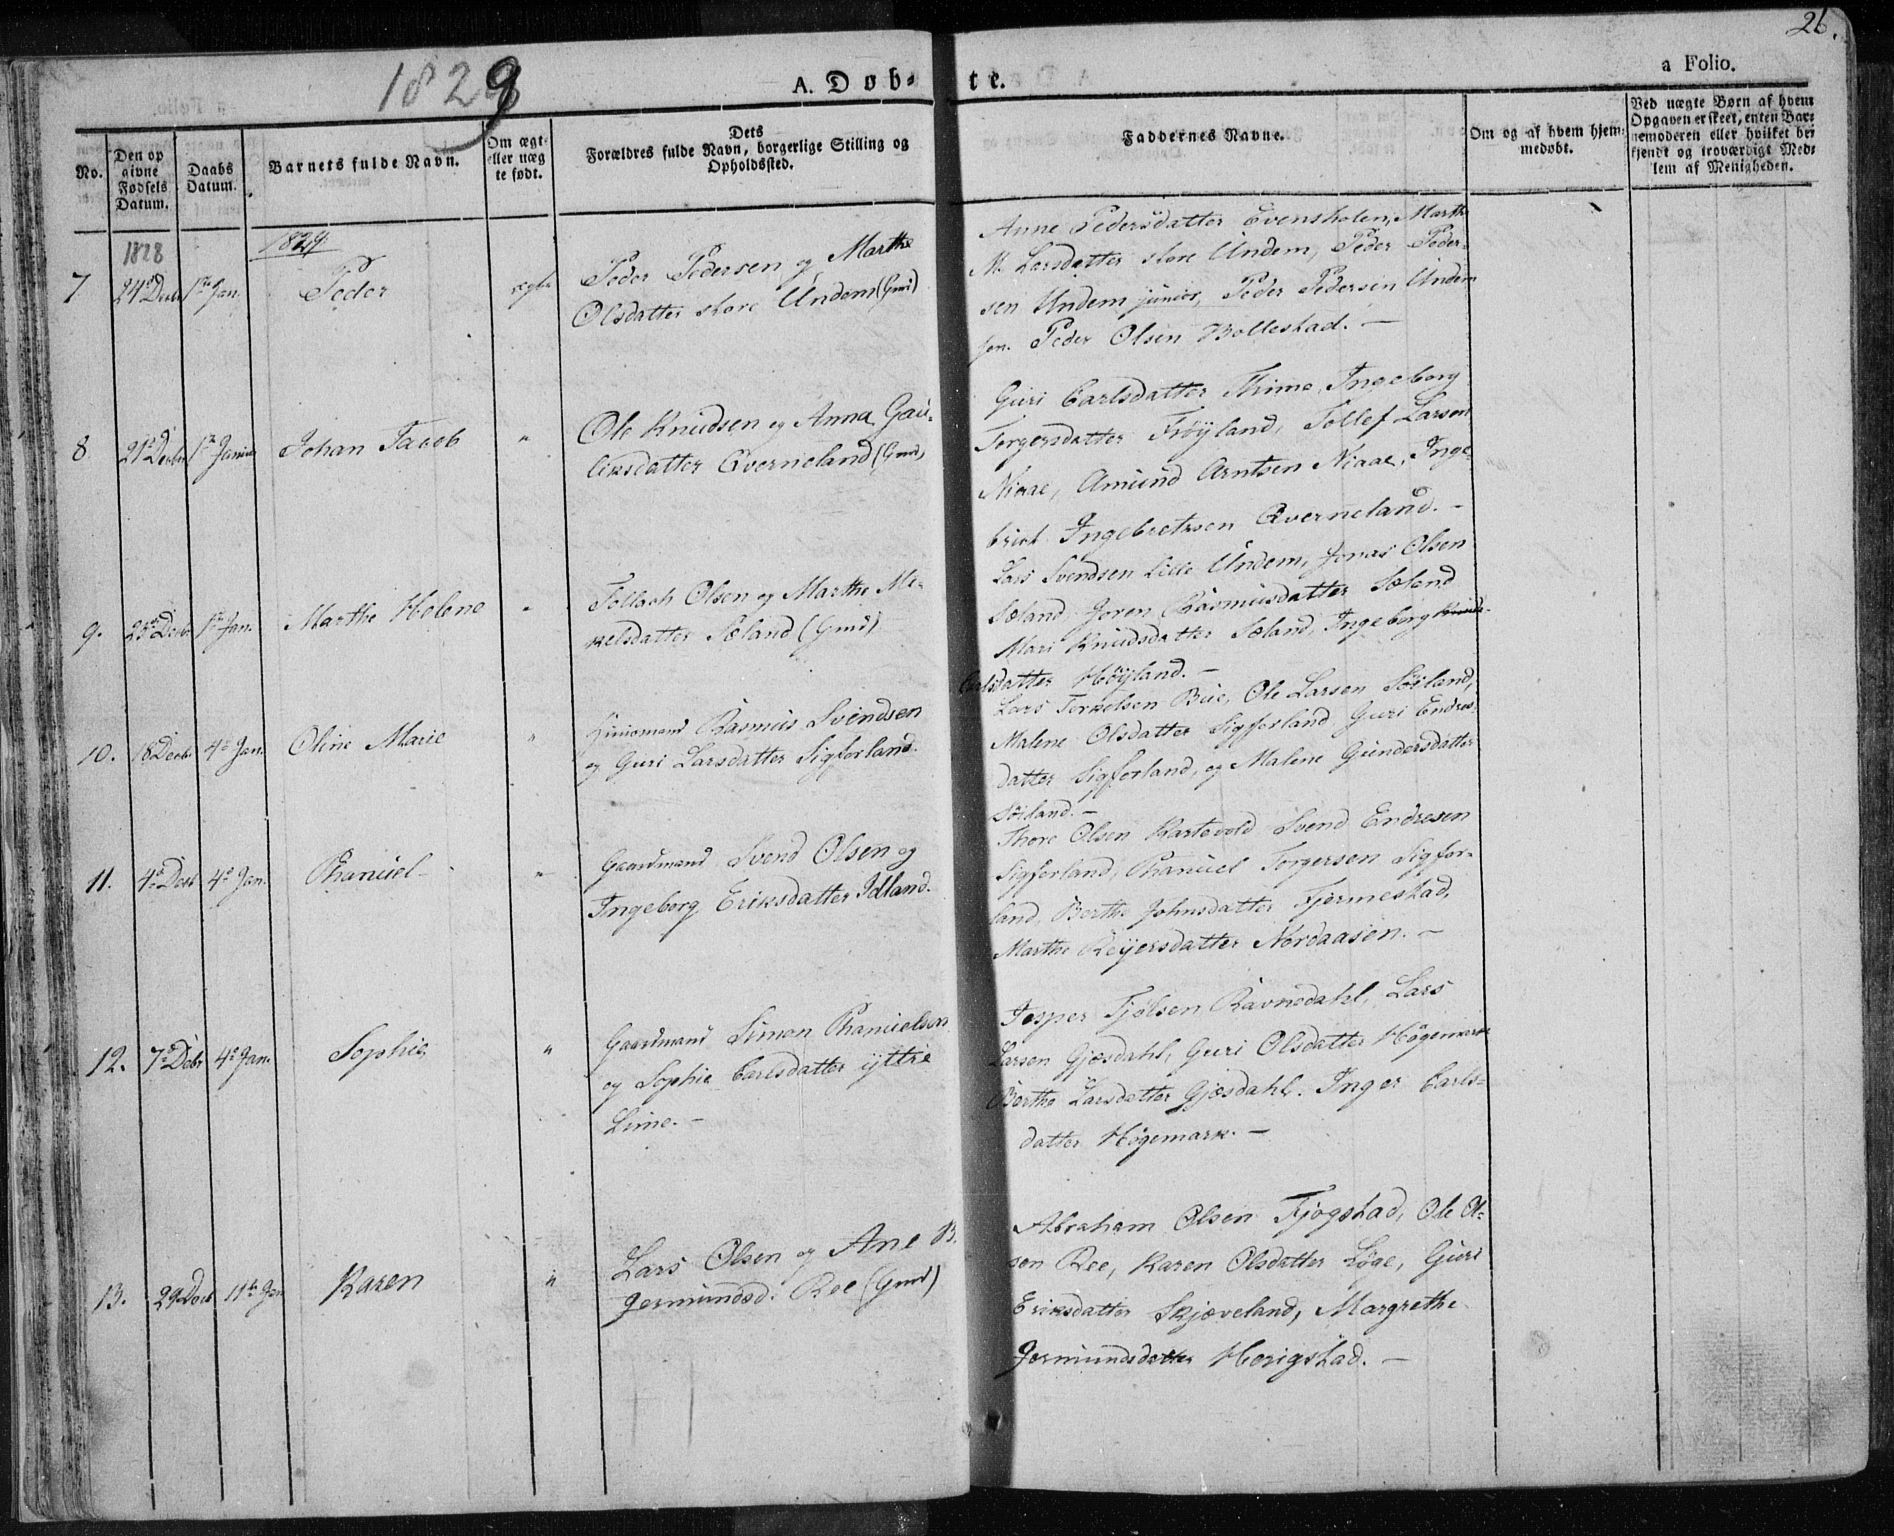 26.
1829
A. Døb-
te.
a Folio.
No.
Den op
givne
Fødsels
Datum.
Daabs
Datum.
Barnets fulde Navn.
Om ægt-
eller uæg
te født.
Dets
Forældres fulde Navn, borgerlige Stilling og
Opholdssted.
Faddernes Navne.
Om og af hvem hjem-
medøbt.
Ved uægte Børn af hvem
Opgaven er skeet, enten Bar-
nemoderen eller hvilket be-
kjendt og troværdigt Med-
lem af Menigheden.
1828
1829
7 24de Decbr 1ste Jan. Peder ægte
Peder Pedersen og Marthe
Olsdatter store Undem (Gmd)
Anne Pedersdatter Evensholen, Marthe
M. Larsdatter store Undem, Peder Peder-
sen Undem junior, Peder Pedersen Undem
sen. Peder Olsen Bollestad. —
8 21de Decbr 1ste Januar Johan Jacob "
Ole Knudsen og Anna Gau-
liksdatter Qverneland (Gmd)
Guri Carlsdatter Thime, Ingeborg
Torgersdatter Frøyland, Tollef Larsen
Niaae, Amund Arntsen Niaae, Inge-
brict Ingebretsen Qverneland. —
9. 25de Decbr 1ste Jan. Marthe Helene "
Tollach Olsen og Marthe Mi-
kelsdatter Sæland (Gmd)
Lars Svendsen Lille Undem, Jonas Olsen
Sæland, Joren Rasmusdatter Sæland
Mari Knudsdatter Sæland, Ingeborg
Carlsdatter Høyland. —
10. 18 Decbr. 4de Jan. Oline Marie "
Huusmand Rasmus Svendsen
og Guri Larsdatter Sigforland.
Lars Terkelsen Bue, Ole Larsen Søiland,
Malene Olsdatter Sigforland Guri Endres-
datter Sigforland, og Malene Gundersdatter
Søiland. —
11. 4de Decbr 4de Jan. Phanuel "
Gaardmand Svend Olsen og
Ingeborg Eriksdatter Idland.
Thore Olsen Kartevold Svend Endresen
Sigforland, Phanuel Torgersen Sigfor-
land, Berthe Johnsdatter Fjermestad,
Marthe Reyersdatter Nordaasen. —
12. 7de Decbr 4de Jan. Sophie "
Gaardmand Simon Phanuelsen
og Sophie Carlsdatter yttre
Lime. —
Jesper Fjølsen Ravnedahl, Lars
Larsen Gjæsdahl, Guri Olsdatter Høgemark
Berthe Larsdatter Gjæsdahl. Inger Carls-
datter Høgemark. —
13. 29 Decbr 11te Jan Karen "
Lars Olsen og Ane B.
Jermundsd. Ree (Gmd)
Abraham Olsen Fjogstad, Ole Ol-
sen Ree, Karen Olsdatter Løge, Guri
Eriksdatter Skjæveland, Margrethe
Jermundsdatter Horigstad. —